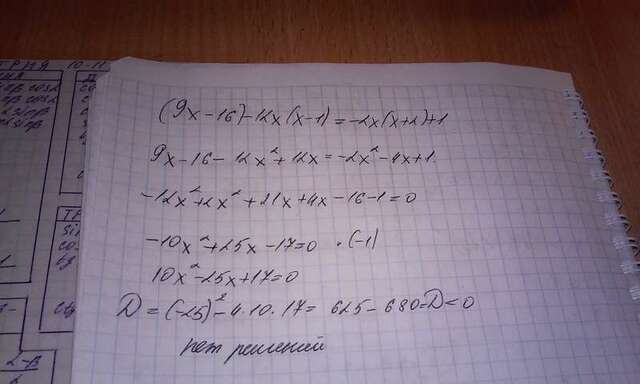 ТРИЯ 10-11
(9x-16)-12x(x-1)=-2x(x+2)+1
9x-16-12x²+12x=-2x²-4x+1.
-12x²+2x²+21x+4x-16-1=0
-10x²+25x-17=0 ·(-1)
10x²-25x+17=0
D=(-25)²-4·10·17= 625-680=D<0
нет решений